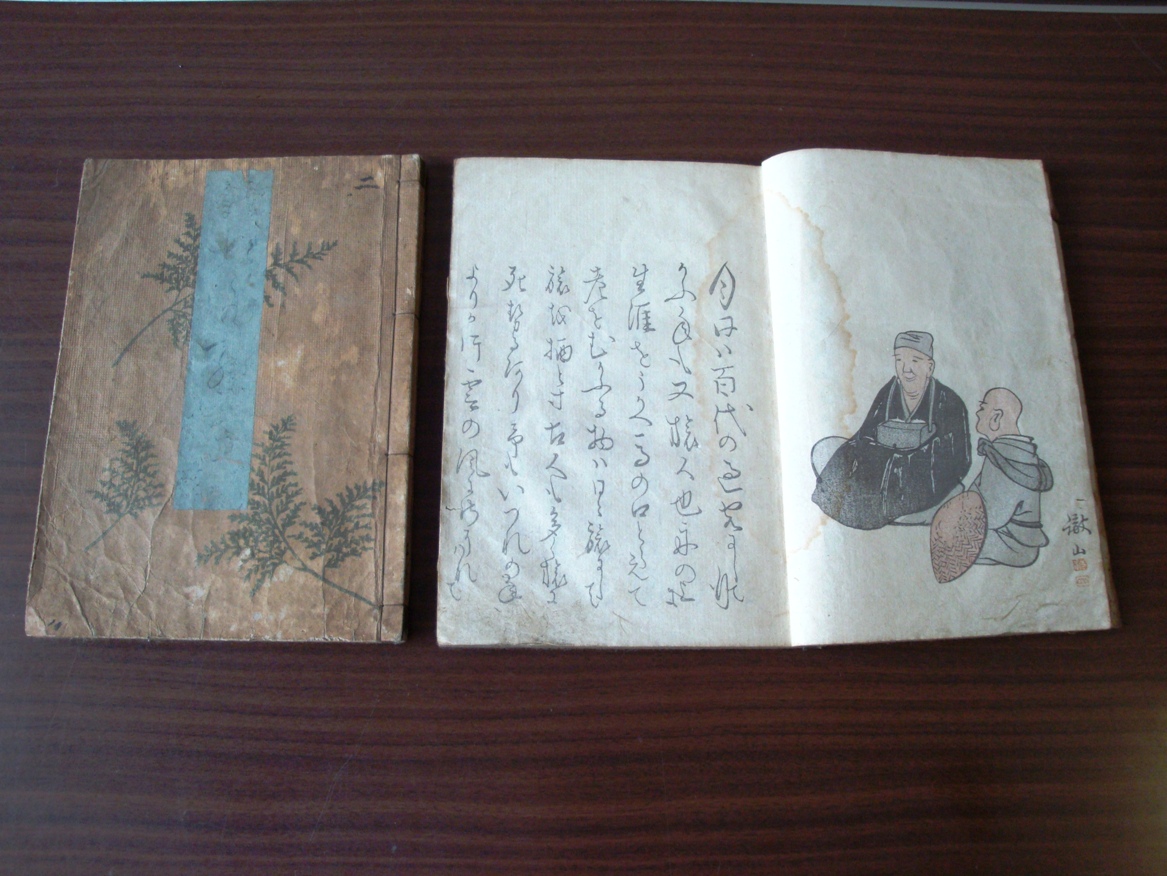 月日ハ百代の過客にして行
かふ年も又旅人也舟の上に
生涯をうかへ馬の口とらえて
老をむかふる物ハ日々旅にして
旅を栖とす古人も多く旅に
死せるあり予もいつれの年
よりか片雲の風にさそはれて
二